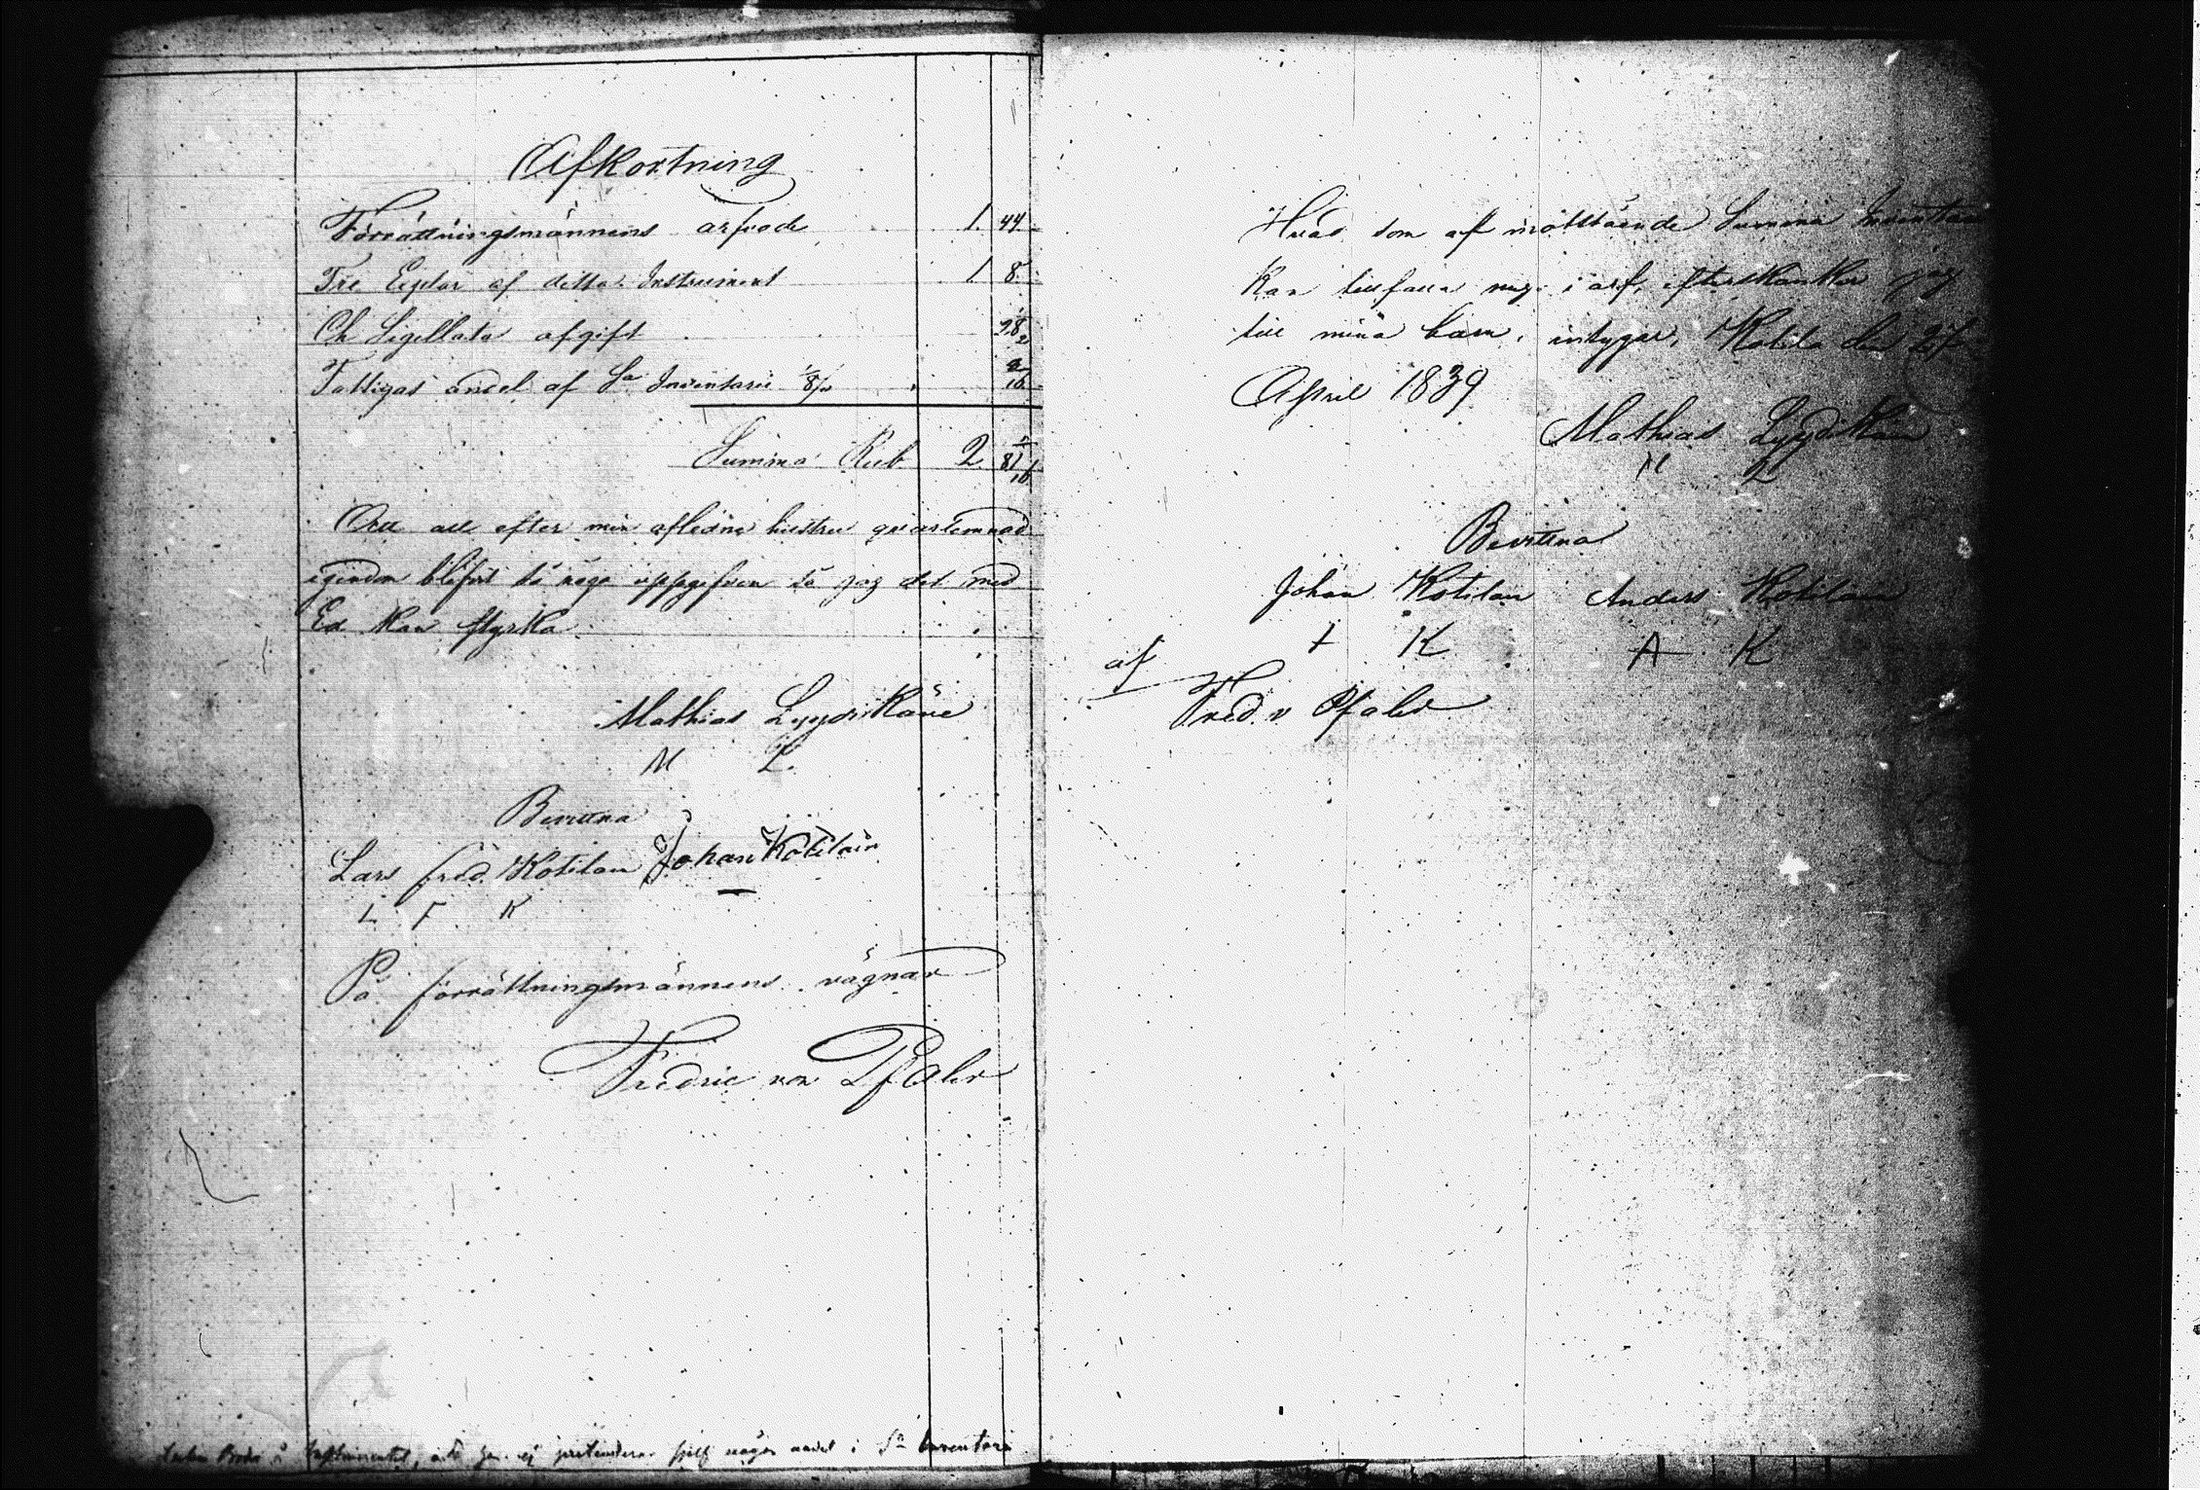 Afkortning
Förrättningsmännens arfvode 1. 44.
Tre Explar af detta Instrument 1. 8.
Ch Sigillata afgift 28
Fattigas andel af Sa Inventarii 1/8 %
Summa Rub 2 81
Att all efter min aflidna hustru qvarlemnad
egendom blifvit så noga uppgifven så jag det med
Ed kan styrka
Mathias Lyydikäin
M L.
Bevittna
Lars Fred. Kotilain Johan Kotilain
L F K
På förrättningsmännens vägnar
Fredric von Pfaler
å Instrumentet, att jag ej pretenderar sjelf någon andel i Sa Inventarii
Hvad som af motstående Summa Inventarii
kan tillfalla mig i arf, efterskänker jag
till mina barn, intygar, Kotila den 27
April 1839
Mathias Lyydikäin
M L
Bevittna
Johan Kotilain Anders Kotilain
I K A K
af
Fred. v Pfaler